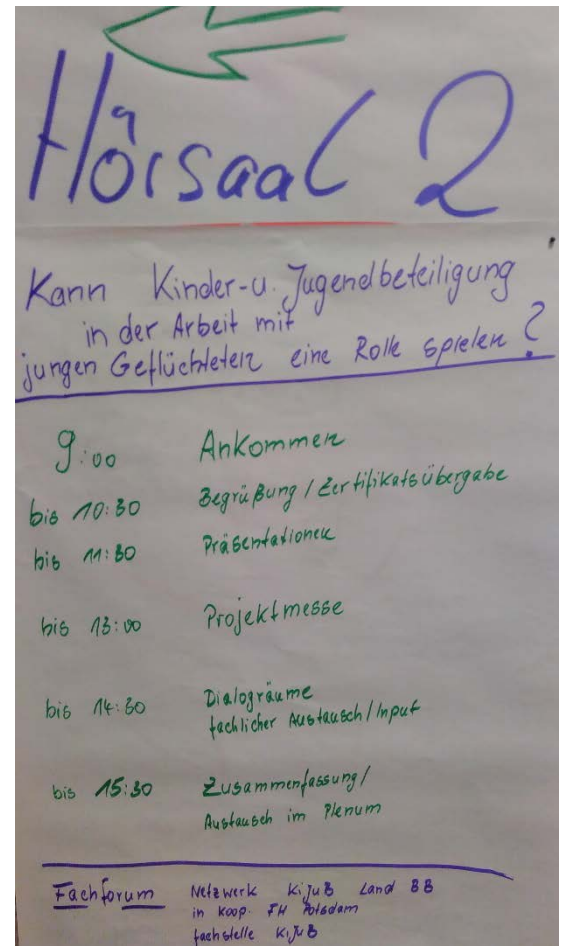 Hörsaal 2
Kann Kinder-u. Jugendbeteiligung
in der Arbeit mit
jungen Geflüchteten eine Rolle spielen?
9:00 Ankommen
bis 10:30 Begrüßung / Zertifikatsübergabe
bis 11:30 Präsentationen
bis 13:00 Projektmesse
bis 14:30 Dialogräume
fachlicher Austausch / Input
bis 15:30 Zusammenfassung /
Austausch im Plenum
Fachforum Netzwerk KijuB Land BB
in Koop. FH Potsdam
fachstelle KijuB